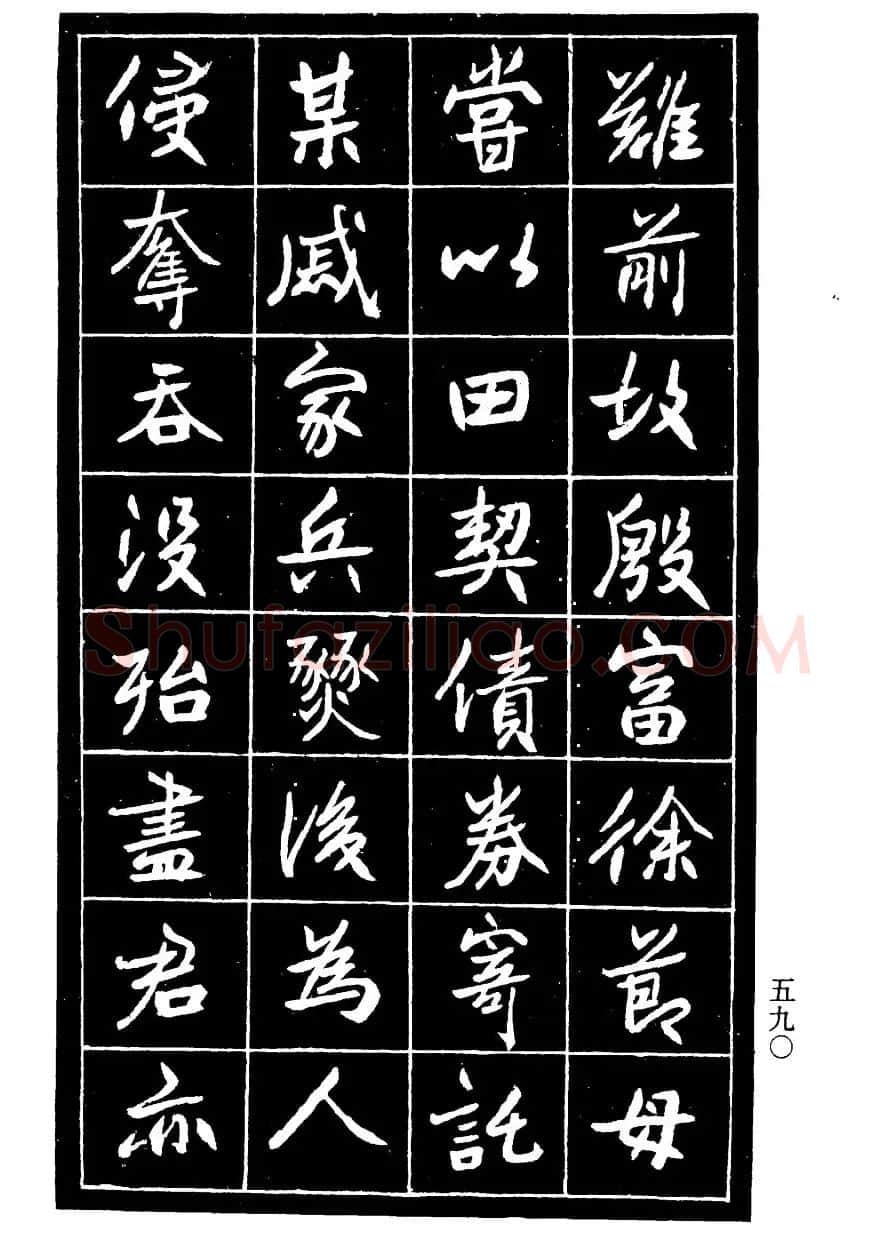 難前故殷富徐節母
嘗以田契債券寄託
某戚家兵燹後為人
侵奪吞沒殆盡君亦
五九〇
Shufaziliao.COM